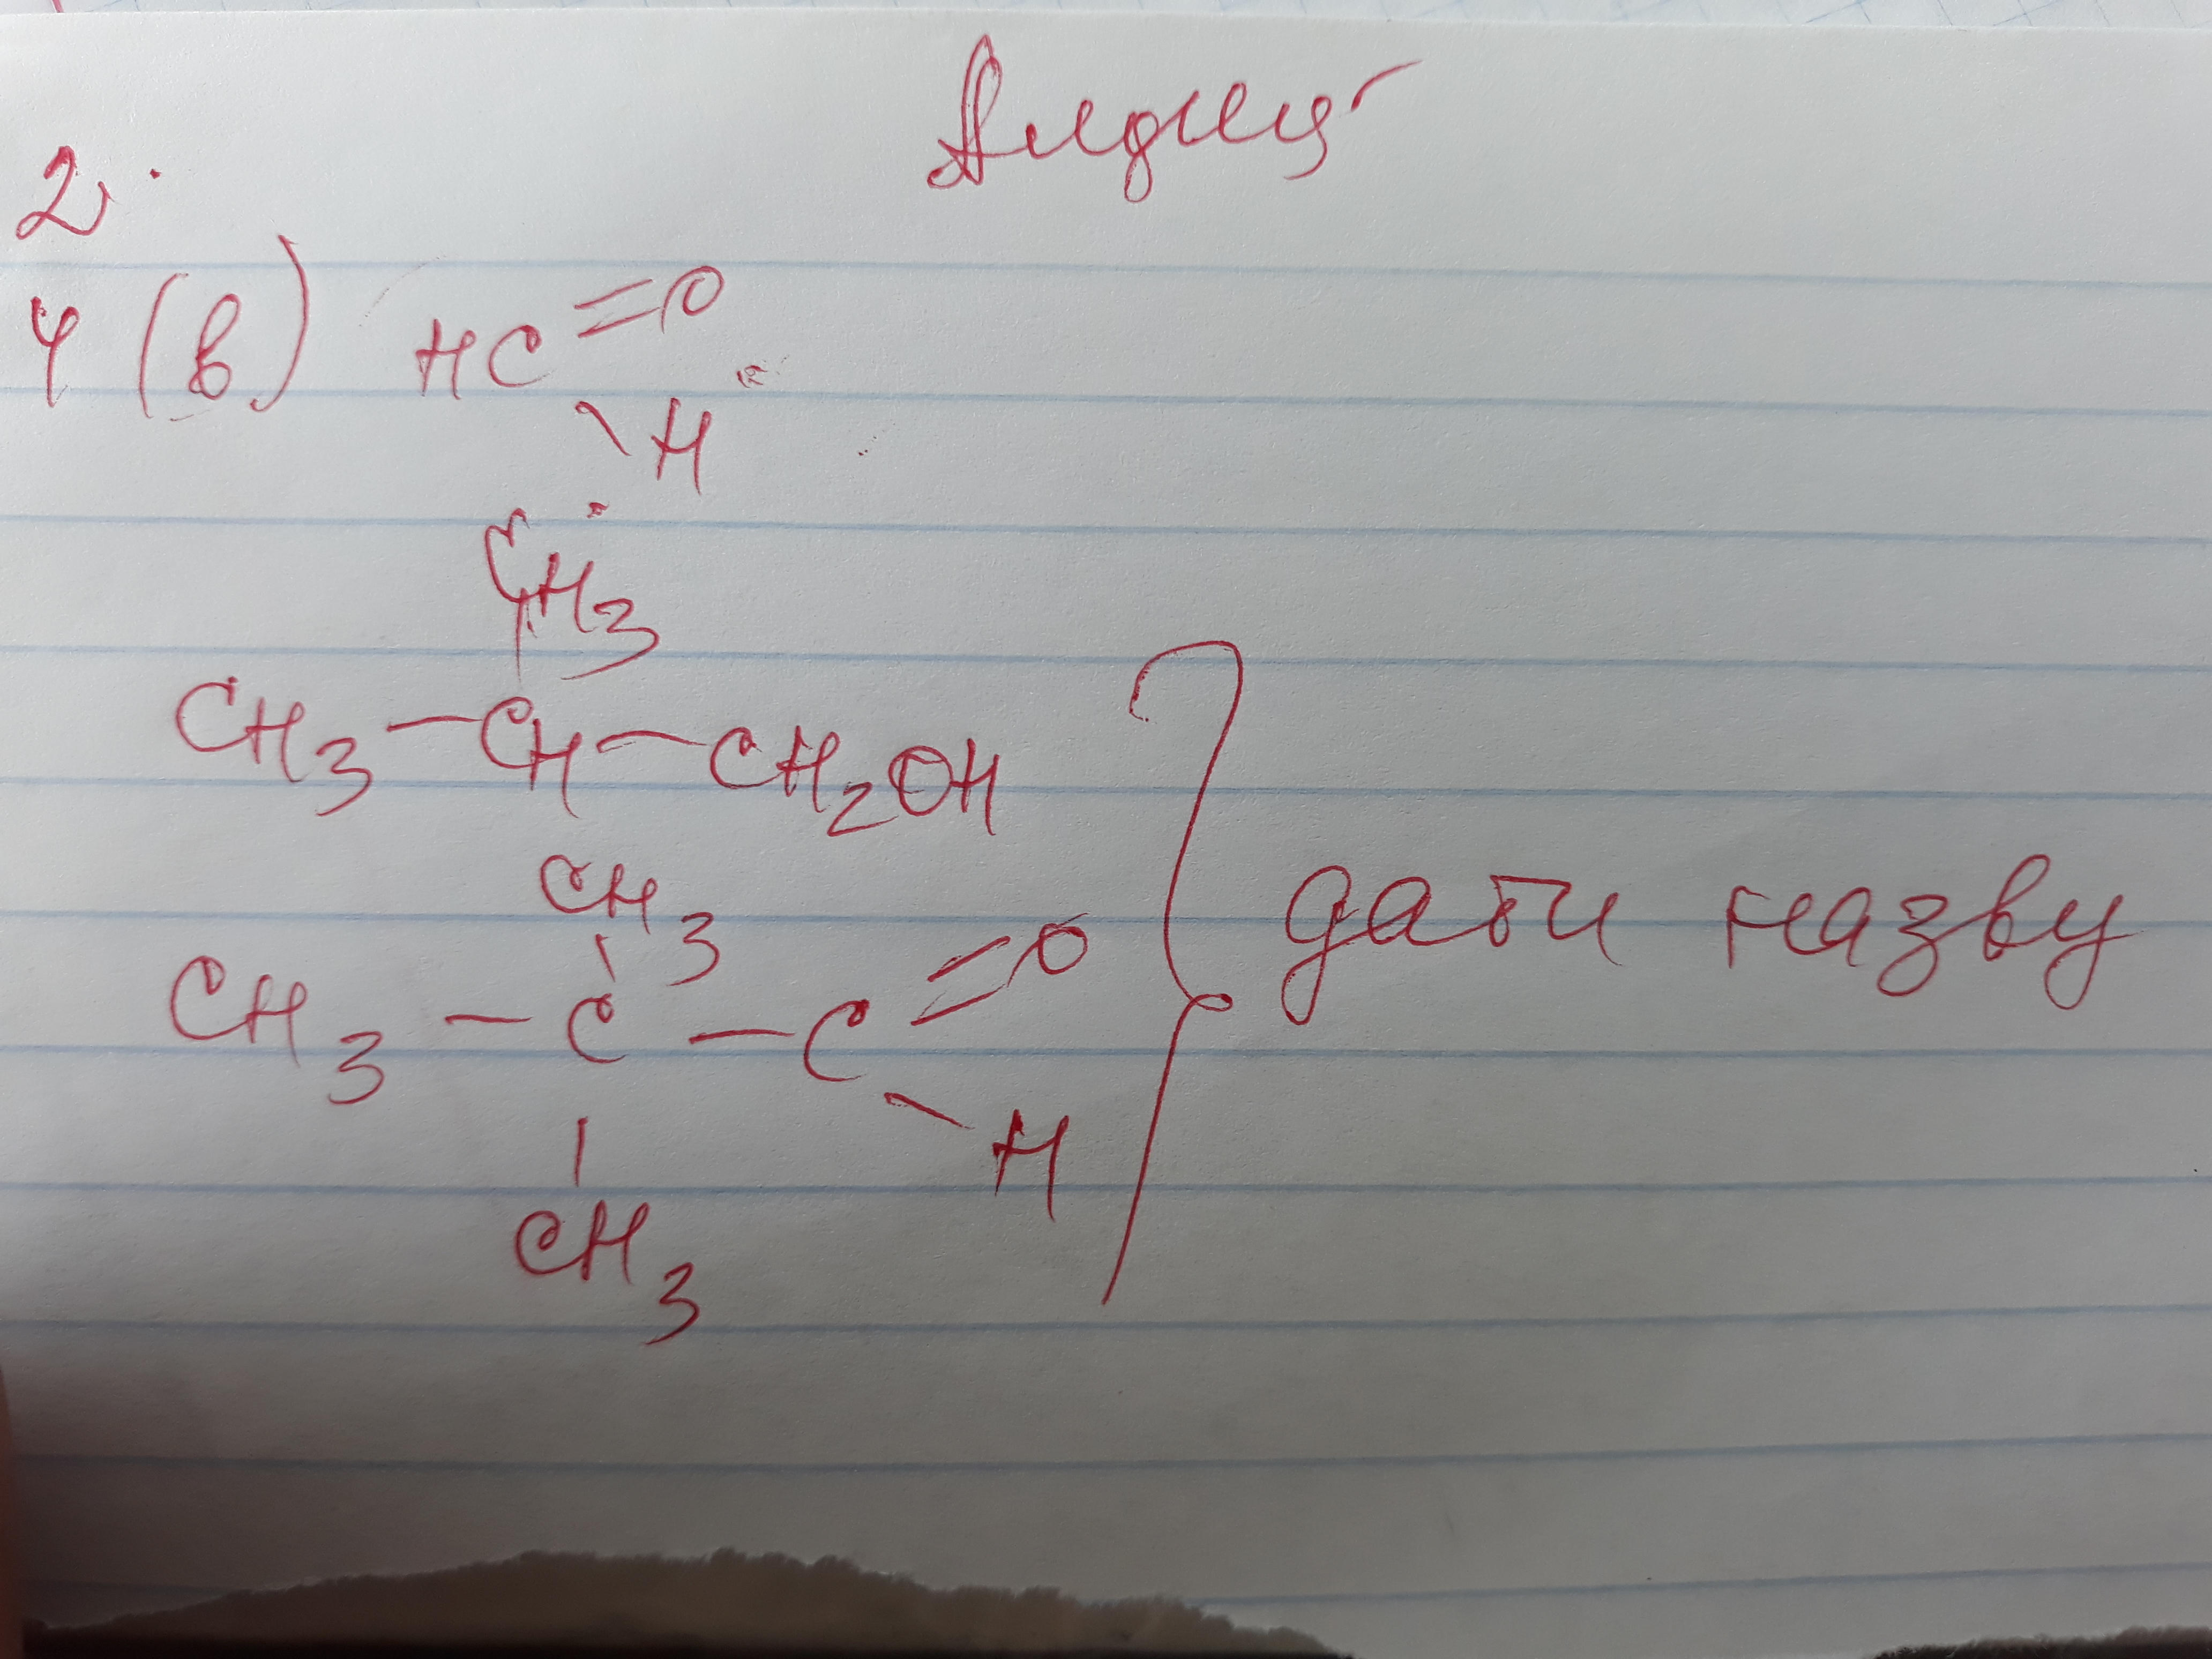 2.
4 (в) HC =O
\ H
CH3
|
CH3 - CH - CH2OH
CH3
|
CH3 - C - C =O
\ H
|
CH3
дати назву